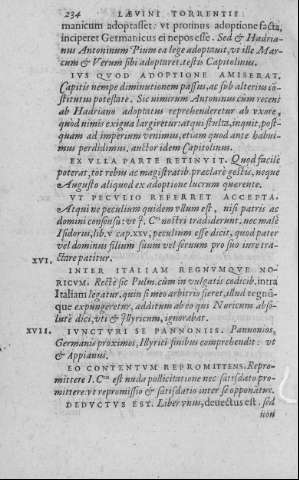 234 LÆVINI TORRENTII
manicum adoptasset: vt protinus adoptione facta,
inciperet Germanicus ei nepos esse. Sed & Hadria-
nus Antoninum Pium ea lege adoptauit, vt ille Mar-
cum & Verum sibi adoptaret. testis Capitolinus.
IVS QVOD ADOPTIONE AMISERAT.
Capitis nempe diminutionem passus, ac sub alterius cõ-
stitutus potestate. Sic nimirum Antoninus cum recens
ab Hadriano adoptatus reprehenderetur ab vxore,
quod nimis exigua largiretur atqui stulta, inquit, post-
quam ad imperium venimus, etiam quod ante habui-
mus perdidimus, auctor idem Capitolinus.
EX VLLA PARTE RETINVIT. Quod facilè
poterat, tot rebus ac magistratib. præclarè gestis, neque
Augusto aliquod ex adoptione lucrum querente.
VT PECVLIO REFERRET ACCEPTA.
Atqui ne peculium quidem vllum est, nisi patris ac
domini consensu: vt J. Cti nostri tradiderunt, nec malè
Isidorus, lib. V cap. XXV, peculium esse dicit, quod pater
vel dominus filium suum vel seruum pro suo iure tra-
ctare patitur.
XVI.
INTER ITALIAM REGNVMQVE NO-
RICVM. Rectè sic Pulm. cùm in vulgatis codicib. intra
Italiam legatur, quin si meo arbitrio fieret, illud regnũ-
que expungeretur, additum ab eo qui Noricum abso-
lutè dici, vti & Illyricum, ignorabat.
XVII. IVNCTVRI SE PANNONIIS. Pannonios,
Germanis proximos, Illyrici finibus comprehendit: vt
& Appianus.
EO CONTENTVM REPROMITTENS. Repro-
mittere I. Ctis est nuda pollicitatione nec satisdato pro-
mittere. vt repromissio & satisdatio inter se opponãtur.
DEDVCTVS EST. Liber vnus, deuectus est. sed
non